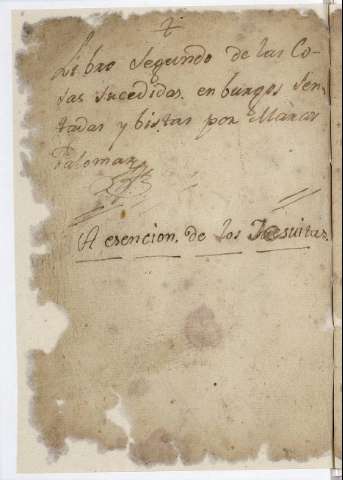 Libro Segundo de las Co-
sas sucedidas. en burgos Sen-
tadas y bistas por Marcos
Palomar
A esencion. de los Jesuitas.